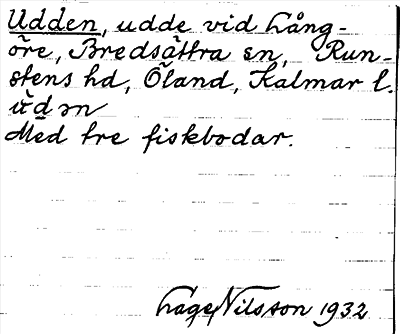 Udden, udde vid Lång-
öre, Bredsättra sn, Run-
stens hd, Öland, Kalmar l.
ùdən
Med tre fiskbodar.
Lage Nilsson 1932